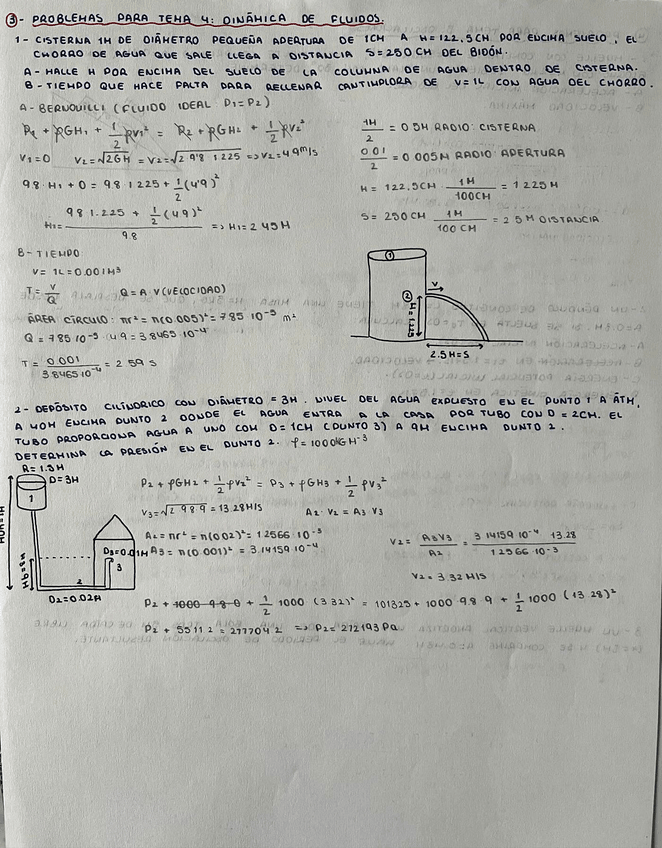 ③- PROBLEMAS PARA TEMA 4: DINÁMICA DE FLUIDOS.
1- CISTERNA 1M DE DIÁMETRO PEQUEÑA APERTURA DE 1CM A H=122.5CM POR ENCIMA SUELO, EL
CHORRO DE AGUA QUE SALE LLEGA A DISTANCIA S=250CM DEL BIDÓN.
A- HALLE H POR ENCIMA DEL SUELO DE LA COLUMNA DE AGUA DENTRO DE CISTERNA.
B- TIEMPO QUE HACE FALTA PARA RELLENAR CANTIMPLORA DE V=1L CON AGUA DEL CHORRO.
A- BERNOUILLI (FLUIDO IDEAL P1=P2)
P1 + ρGH1 + 1/2 ρV1² = P2 + ρGH2 + 1/2 ρV2²
V1=0 V2=√2GH = V2=√2 9'8 1.225 => V2=4'9 m/s
9'8 · H1 + 0 = 9.8 · 1.225 + 1/2 (4'9)²
H1= 9.8 1.225 + 1/2 (4.9)² / 9.8 => H1=2.45M
1M / 2 = 0.5M RADIO CISTERNA
0.01 / 2 = 0.005M RADIO APERTURA
H = 122.5CM · 1M / 100CM = 1.225M
S = 250CM · 1M / 100 CM = 2.5M DISTANCIA
B- TIEMPO
V= 1L=0.001M³
T= V/Q Q=A·V(VELOCIDAD)
ÁREA CÍRCULO: πr²=π(0.005)²=7.85·10⁻⁵ m²
Q=7.85·10⁻⁵·4.9=3.8465·10⁻⁴
T= 0.001 / 3.8465·10⁻⁴ = 2.59 s
①
②
V
H=1.225
2.5M=S
2- DEPÓSITO CILÍNDRICO CON DIÁMETRO=3M. NIVEL DEL AGUA EXPUESTO EN EL PUNTO 1 A ATM,
A 40M ENCIMA PUNTO 2 DONDE EL AGUA ENTRA A LA CASA POR TUBO CON D=2CM. EL
TUBO PROPORCIONA AGUA A UNO CON D=1CM (PUNTO 3) A 9M ENCIMA PUNTO 2.
DETERMINA LA PRESIÓN EN EL PUNTO 2. ρ=1000KG M⁻³
R=1.5M
D=3M
1
2
3
D3=0.01M
D2=0.02M
P2 + ρGH2 + 1/2 ρV2² = P3 + ρGH3 + 1/2 ρV3²
V3=√2 9.8 9 = 13.28M/S A2·V2=A3·V3
A2=πr²=π(0.02)²=1.2566·10⁻³
A3=π(0.01)²=3.14159·10⁻⁴
V2= A3V3 / A2 = 3.14159·10⁻⁴ 13.28 / 1.2566·10⁻³
V2=3.32 M/S
P2 + 1000·9.8·0 + 1/2 1000 (3.32)² = 101325+1000·9.8·9 + 1/2 1000 (13.28)²
P2 + 5511.2 = 277704.2 => P2=272193 Pa